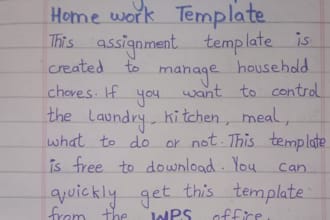 Home work Template
This assignment template is
created to manage household
chores. If you want to control
the laundry, kitchen, meal,
what to do or not. This template
is free to download. You can
quickly get this template
from the WPS office.